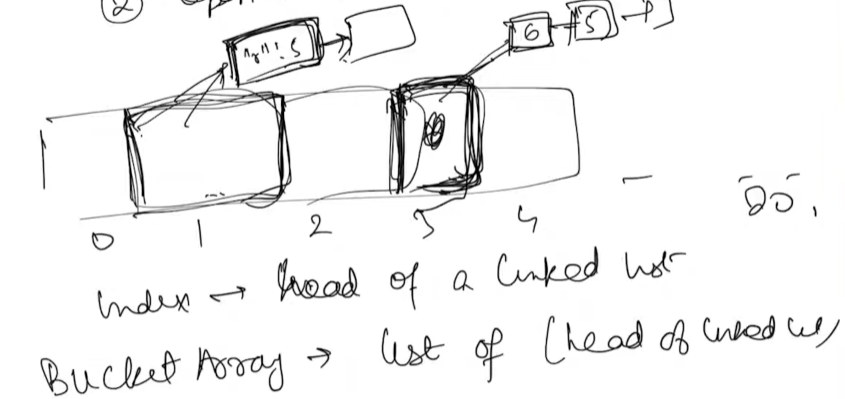 ②
"x" : 5
6 5
0 1 2 3 4
Index → head of a linked list
Bucket Array → list of (head of linked